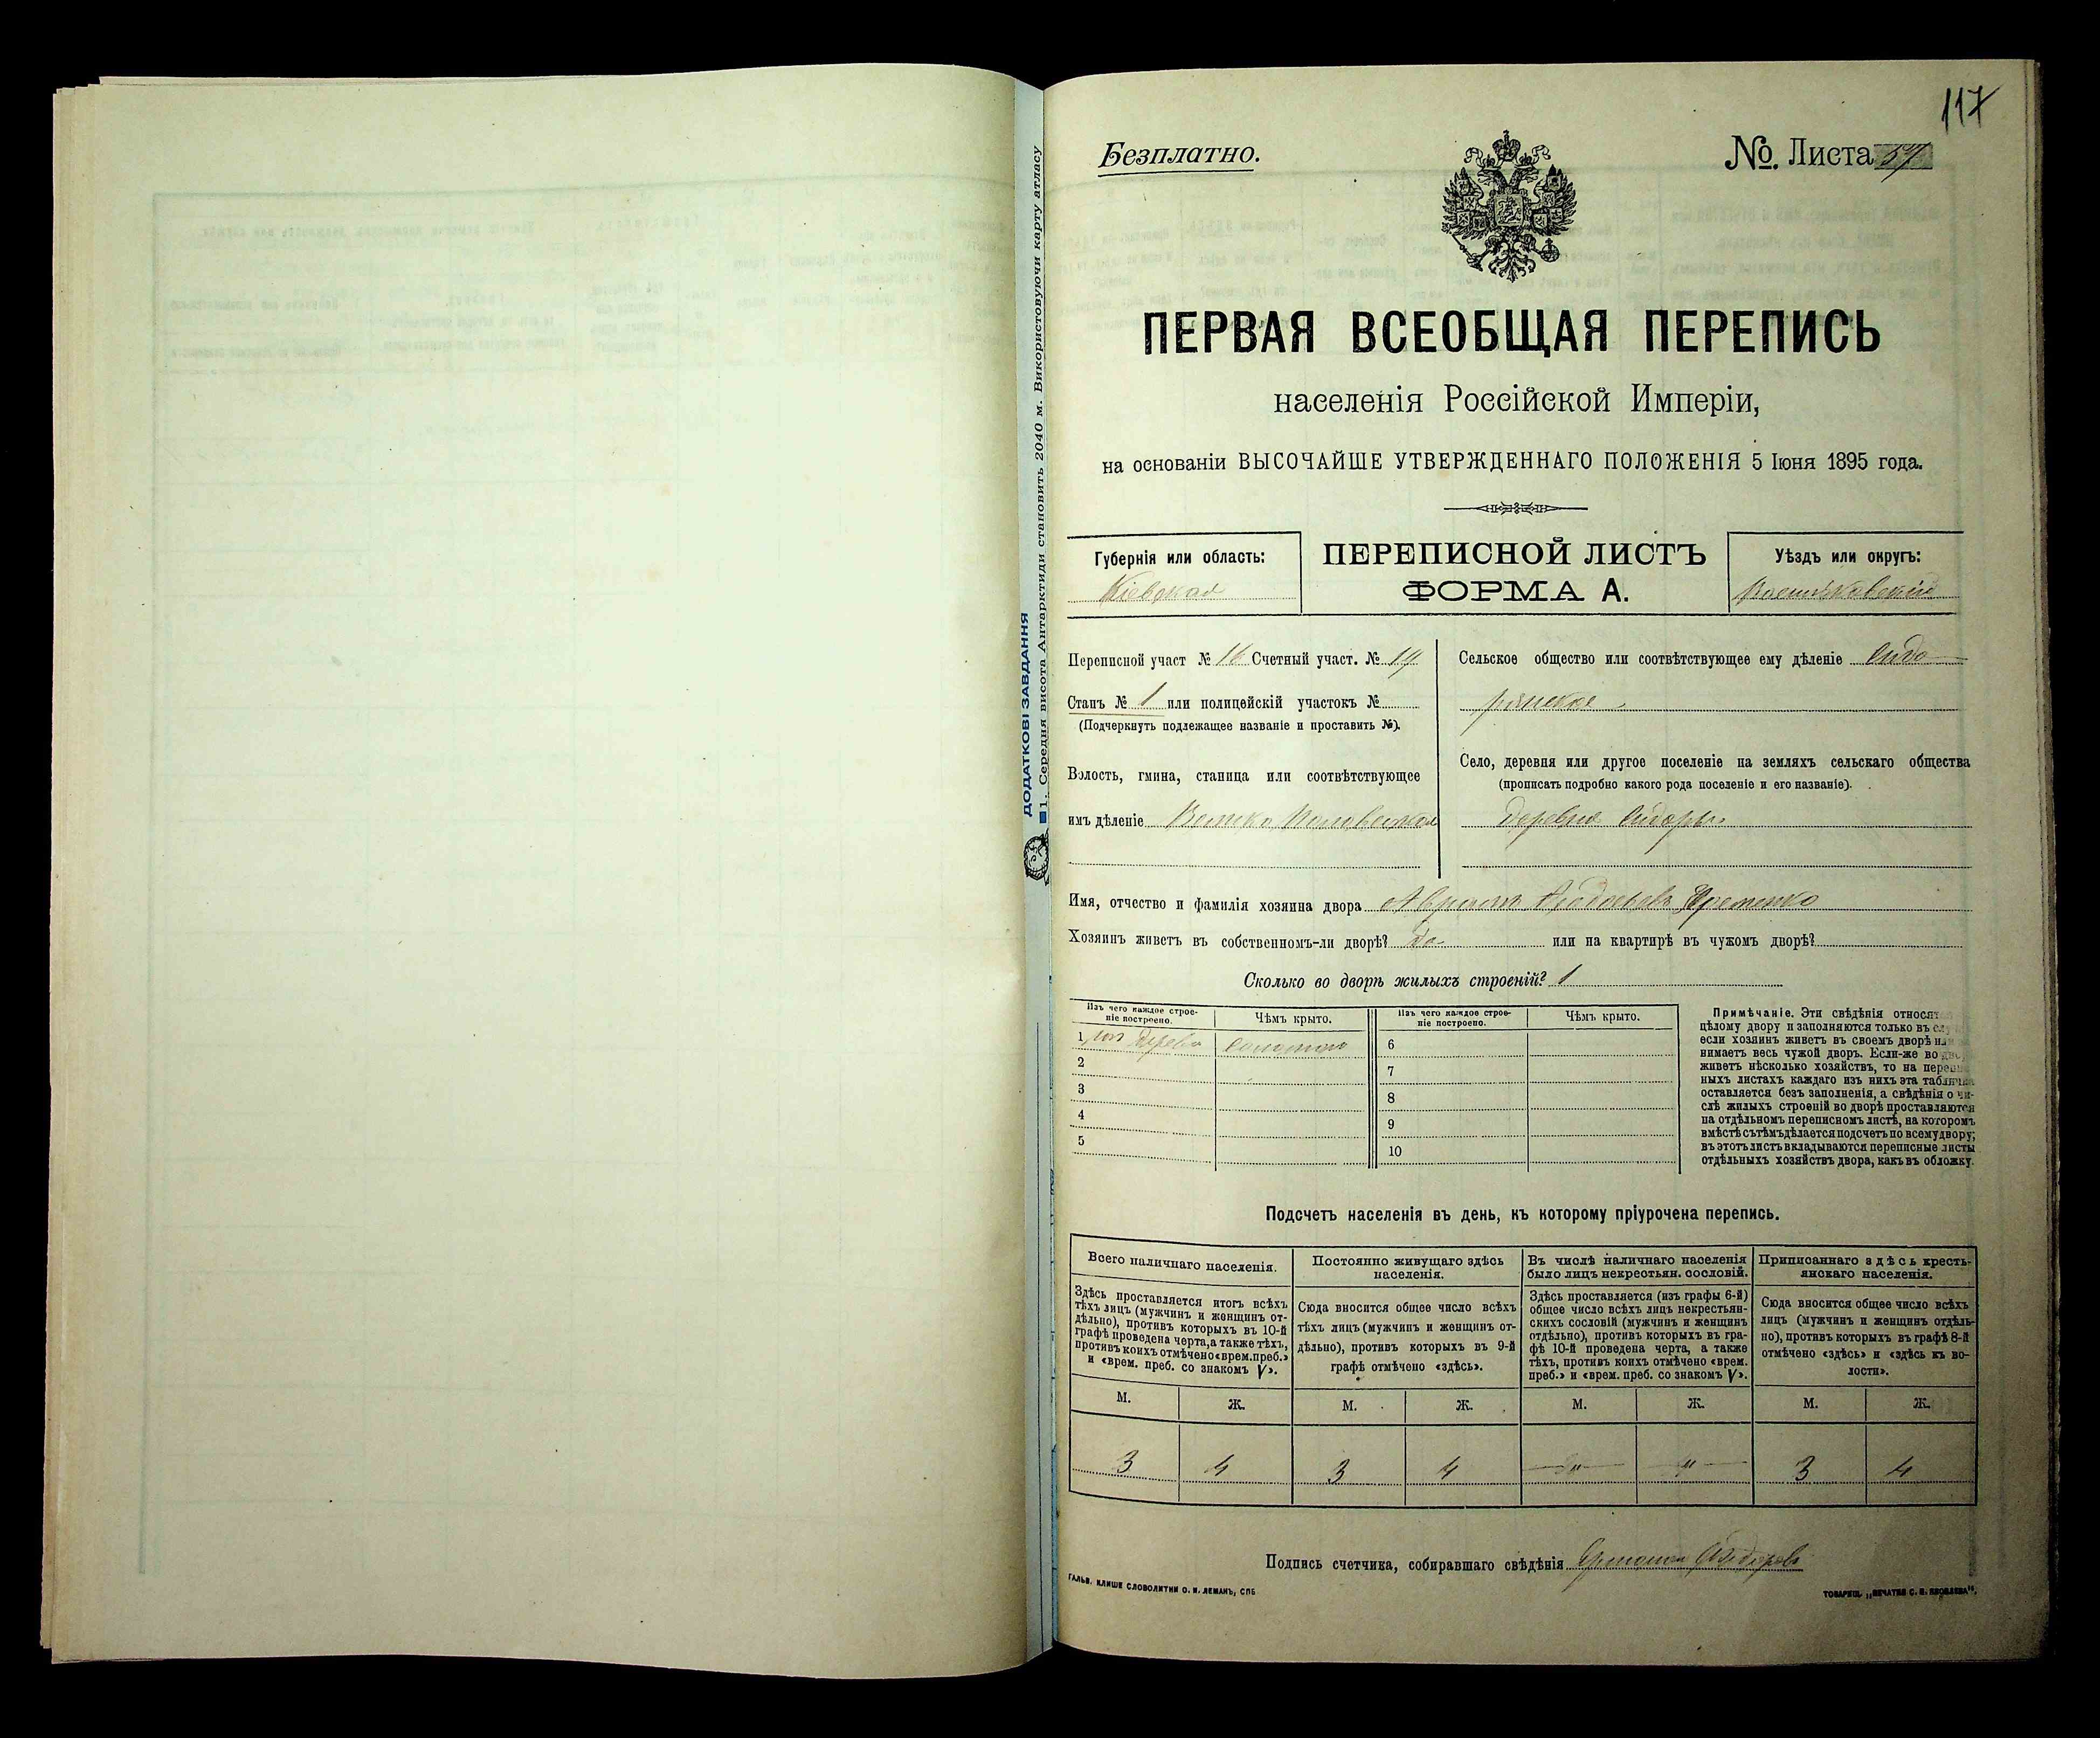 ДОДАТКОВІ ЗАВДАННЯ
1. Середня висота Антарктиди становить 2040 м. Використовуючи карту атласу
117
Безплатно.
№. Листа 57
ПЕРВАЯ ВСЕОБЩАЯ ПЕРЕПИСЬ
населенія Россійской Имперіи,
на основаніи ВЫСОЧАЙШЕ УТВЕРЖДЕННАГО ПОЛОЖЕНІЯ 5 Іюня 1895 года.
Губернія или область:
Кіевская
ПЕРЕПИСНОЙ ЛИСТЪ
ФОРМА А.
Уѣздъ или округъ:
Переписной участ № 16 Счетный участ. № 14
Станъ № 1 или полицейскій участокъ №
(Подчеркнуть подлежащее названіе и проставить №).
Волость, гмина, станица или соотвѣтствующее
имъ дѣленіе Велико Половецкая
Сельское общество или соотвѣтствующее ему дѣленіе Сидо
рянское
Село, деревня или другое поселеніе на земляхъ сельскаго общества
(прописать подробно какого рода поселеніе и его названіе).
деревня Сидоры
Имя, отчество и фамилія хозяина двора
Хозяинъ живетъ въ собственномъ-ли дворѣ? да или на квартирѣ въ чужомъ дворѣ?
Сколько во дворѣ жилыхъ строеній? 1
Изъ чего каждое строе-
ніе построено.
Чѣмъ крыто.
Изъ чего каждое строе-
ніе построено.
Чѣмъ крыто.
1 изъ дерева соломою
2
3
4
5
6
7
8
9
10
Примѣчаніе. Эти свѣдѣнія относят
цѣлому двору и заполняются только въ слу
если хозяинъ живетъ въ своемъ дворѣ или
нимаетъ весь чужой дворъ. Если-же во дво
живетъ нѣсколько хозяйствъ, то на перепи
ныхъ листахъ каждаго изъ нихъ эта табличка
оставляется безъ заполненія, а свѣдѣнія о чи-
слѣ жилыхъ строеній во дворѣ проставляются
на отдѣльномъ переписномъ листѣ, на которомъ
вмѣстѣ съ тѣмъ дѣлается подсчетъ по всему двору;
въ этотъ листъ вкладываются переписные листы
отдѣльныхъ хозяйствъ двора, какъ въ обложку.
Подсчетъ населенія въ день, къ которому пріурочена перепись.
Всего наличнаго населенія.
Здѣсь проставляется итогъ всѣхъ
тѣхъ лицъ (мужчинъ и женщинъ от-
дѣльно), противъ которыхъ въ 10-й
графѣ проведена черта, а также тѣхъ,
противъ коихъ отмѣчено «врем. преб.»
и «врем. преб. со знакомъ V».
Постоянно живущаго здѣсь
населенія.
Сюда вносится общее число всѣхъ
тѣхъ лицъ (мужчинъ и женщинъ от-
дѣльно), противъ которыхъ въ 9-й
графѣ отмѣчено «здѣсь».
Въ числѣ наличнаго населенія
было лицъ некрестьян. сословій.
Здѣсь проставляется (изъ графы 6-й)
общее число всѣхъ лицъ некрестьян-
скихъ сословій (мужчинъ и женщинъ
отдѣльно), противъ которыхъ въ гра-
фѣ 10-й проведена черта, а также
тѣхъ, противъ коихъ отмѣчено «врем.
преб.» и «врем. преб. со знакомъ V».
Приписаннаго здѣсь кресть-
янскаго населенія.
Сюда вносится общее число всѣхъ
лицъ (мужчинъ и женщинъ отдѣль-
но), противъ которыхъ въ графѣ 8-й
отмѣчено «здѣсь» и «здѣсь къ во-
лости».
М. Ж. М. Ж. М. Ж. М. Ж.
3 4 3 4 — " — — " — 3 4
Подпись счетчика, собиравшаго свѣдѣнія
ГАЛЬВ. КЛИШЕ СЛОВОЛИТНИ О. И. ЛЕМАНЪ, СПБ
ТОВАРИЩ. „ПЕЧАТНЯ С. П. ЯКОВЛЕВА“.